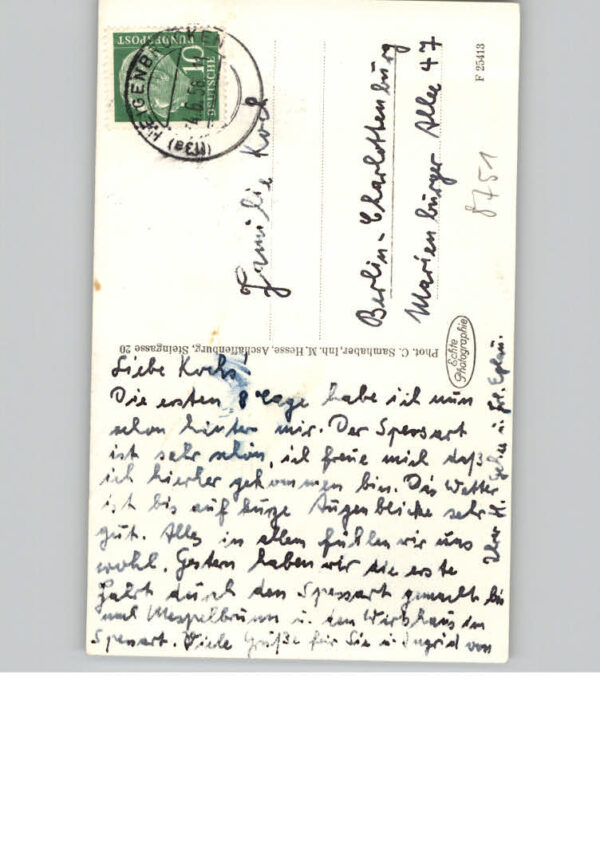 Liebe Kochs!
Die ersten 8 Tage habe ich nun
schon hinter mir. Der Spessart
ist sehr schön, ich freue mich daß
ich hierher gekommen bin. Das Wetter
ist bis auf kurze Augenblicke sehr
gut. Alles in allem fühlen wir uns
wohl. Gestern haben wir die erste
Fahrt durch den Spessart gemacht bis
nach Mespelbrunn u. dem Wirtshaus im
Spessart. Viele Grüße für Sie u. Ingrid von
Ihrer H. u. Frl.
Familie Koch
Berlin-Charlottenburg
Marienburger Allee 47
8751
F 25413
Echte
Photographie
Phot. C. Samhaber, Inh. M. Hesse, Aschaffenburg, Steingasse 20
DEUTSCHE
BUNDESPOST
10
(13a) HEIGENBR